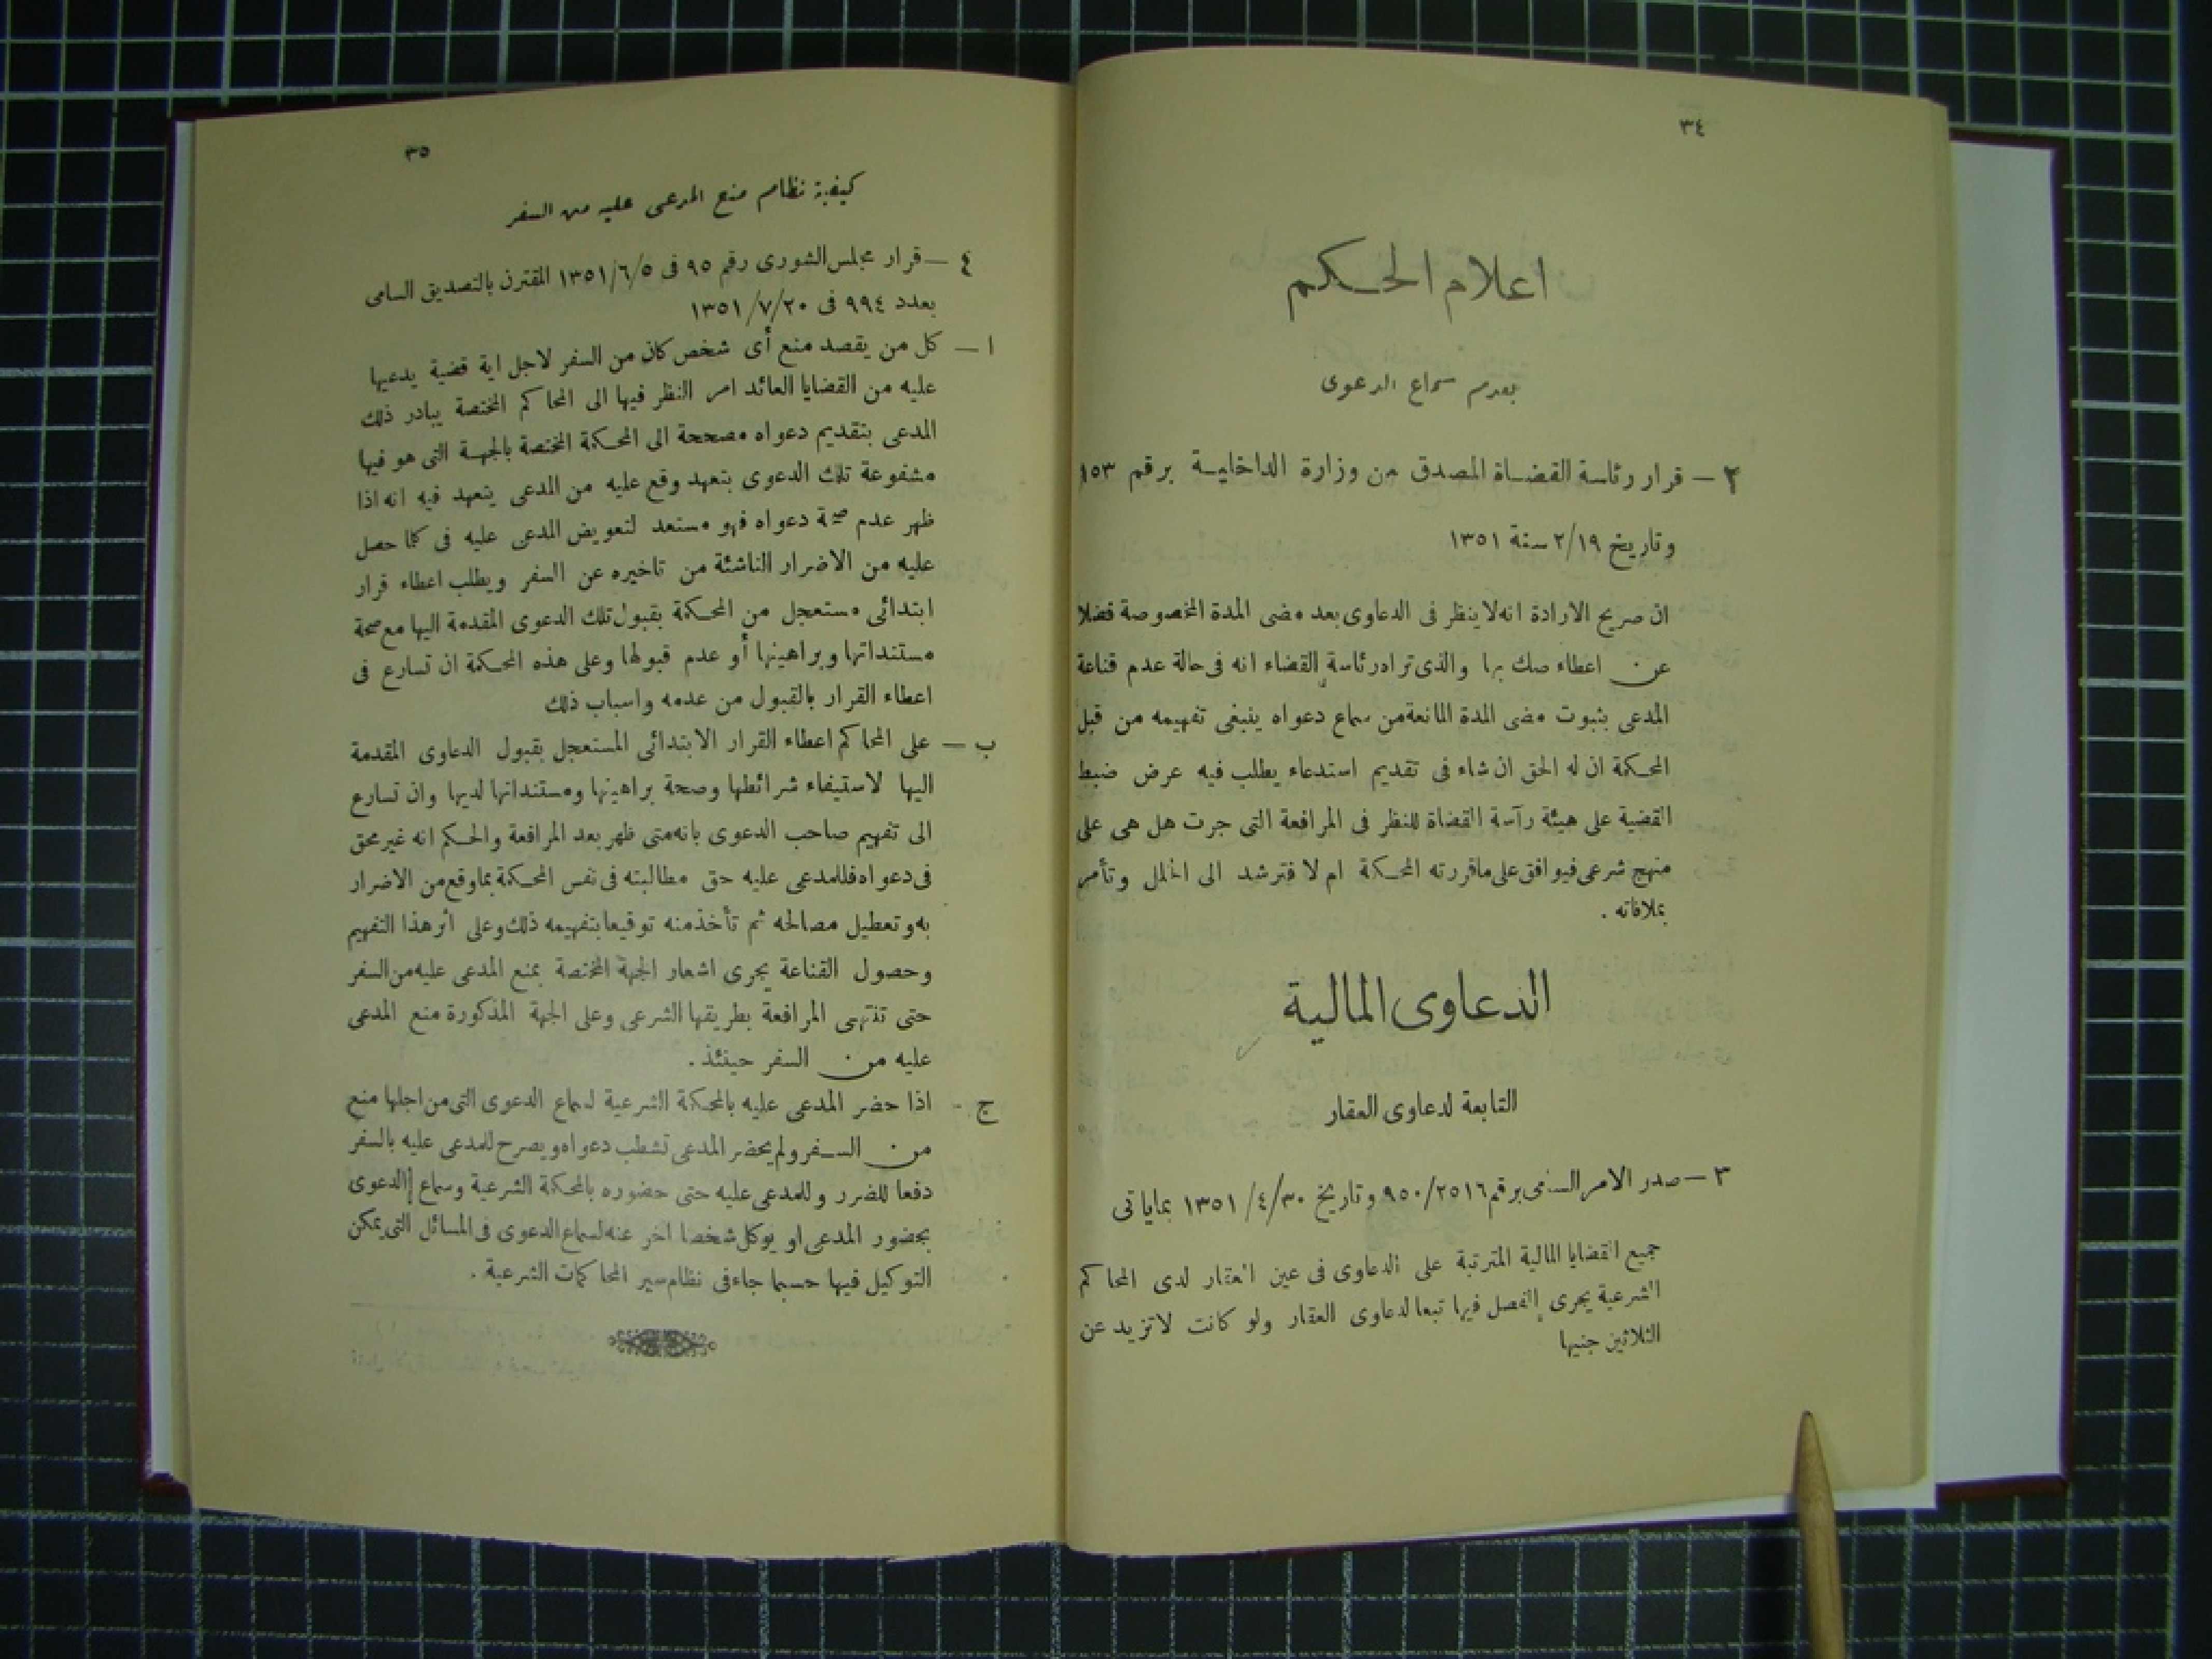 ٣٤
اعلام الحكم
بعدم سماع الدعوى
٢ — قرار رئاسة القضاة المصدق من وزارة الداخلية برقم ١٥٣
وتاريخ ٢/١٩ سنة ١٣٥١
ان صريح الارادة انه لا ينظر فى الدعاوى بعد مضى المدة المخصوصة فضلا
عن اعطاء صك بها والذى تراه رئاسة القضاء انه فى حالة عدم قناعة
المدعى بثبوت مضى المدة المانعة من سماع دعواه ينبغى تفهيمه من قبل
المحكمة ان له الحق ان شاء فى تقديم استدعاء يطلب فيه عرض ضبط
القضية على هيئة رآسة القضاة للنظر فى المرافعة التى جرت هل هى على
منهج شرعى فيوافق على ماقررته المحكمة ام لا فترشد الى الخلل وتأمر
بملافاته .
الدعاوى المالية
التابعة لدعاوى العقار
٣ — صدر الامر السامى برقم ٩٥٠/٢٥١٦ وتاريخ ٣٠/٤/ ١٣٥١ بماياتى
جميع القضايا المالية المترتبة على الدعاوى فى عين العقار لدى المحاكم
الشرعية يجرى الفصل فيها تبعا لدعاوى العقار ولو كانت لاتزيد عن
الثلاثين جنيها
٣٥
كيفية نظام منع المدعى عليه من السفر
٤ — قرار مجلس الشورى رقم ٩٥ فى ١٣٥١/٦/٥ المقترن بالتصديق السامى
بعدد ٩٩٤ فى ١٣٥١/٧/٢٠
ا — كل من يقصد منع أى شخص كان من السفر لاجل اية قضية يدعيها
عليه من القضايا العائد امر النظر فيها الى المحاكم المختصة يبادر ذلك
المدعى بتقديم دعواه مصححة الى المحكمة المختصة بالجهة التى هو فيها
مشفوعة تلك الدعوى بتعهد وقع عليه من المدعى يتعهد فيه انه اذا
ظهر عدم صحة دعواه فهو مستعد لتعويض المدعى عليه فى كلما حصل
عليه من الاضرار الناشئة من تاخيره عن السفر ويطلب اعطاء قرار
ابتدائى مستعجل من المحكمة بقبول تلك الدعوى المقدمة اليها مع صحة
مستنداتها وبراهينها أو عدم قبولها وعلى هذه المحكمة ان تسارع فى
اعطاء القرار بالقبول من عدمه واسباب ذلك
ب — على المحاكم اعطاء القرار الابتدائى المستعجل بقبول الدعاوى المقدمة
اليها لاستيفاء شرائطها وصحة براهينها ومستنداتها لديها وان تسارع
الى تفهيم صاحب الدعوى بانه متى ظهر بعد المرافعة والحكم انه غير محق
فى دعواه فللمدعى عليه حق مطالبته فى نفس المحكمة بماوقع من الاضرار
به وتعطيل مصالحه ثم تأخذ منه توقيعا بتفهيمه ذلك وعلى اثر هذا التفهيم
وحصول القناعة يجرى اشعار الجهة المختصة بمنع المدعى عليه من السفر
حتى تنتهى المرافعة بطريقها الشرعى وعلى الجهة المذكورة منع المدعى
عليه من السفر حينئذ .
ج - اذا حضر المدعى عليه بالمحكمة الشرعية لسماع الدعوى التى من اجلها منع
من السفر ولم يحضر المدعى تشطب دعواه ويصرح للمدعى عليه بالسفر
دفعا للضرر وللمدعى عليه حتى حضوره بالمحكمة الشرعية وسماع الدعوى
بحضور المدعى او يوكل شخصا اخر عنه لسماع الدعوى فى المسائل التى يمكن
التوكيل فيها حسبما جاء فى نظام سير المحاكمات الشرعية .